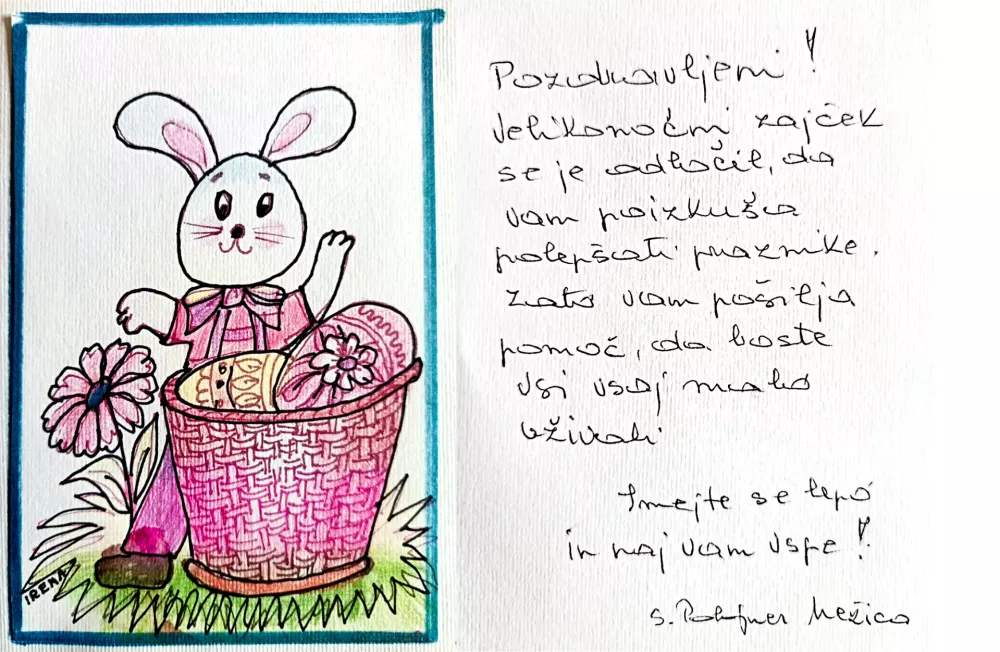 IRENA
Pozdravljeni!
Velikonočni zajček
se je odločil, da
vam poizkuša
polepšati praznike.
Zato vam pošilja
pomoč, da boste
vsi vsaj malo
uživali
Imejte se lepo
in naj vam uspe!
s. Mežica